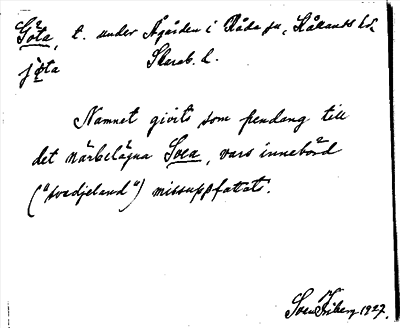 Göta, t. under Ågården i Råda sn, Kållands hd
jǫta Skarab. l.
Namnet givits som pendang till
det närbelägna Svea, vars innebörd
("svedjeland") missuppfattats.
Sven Friberg 1927.